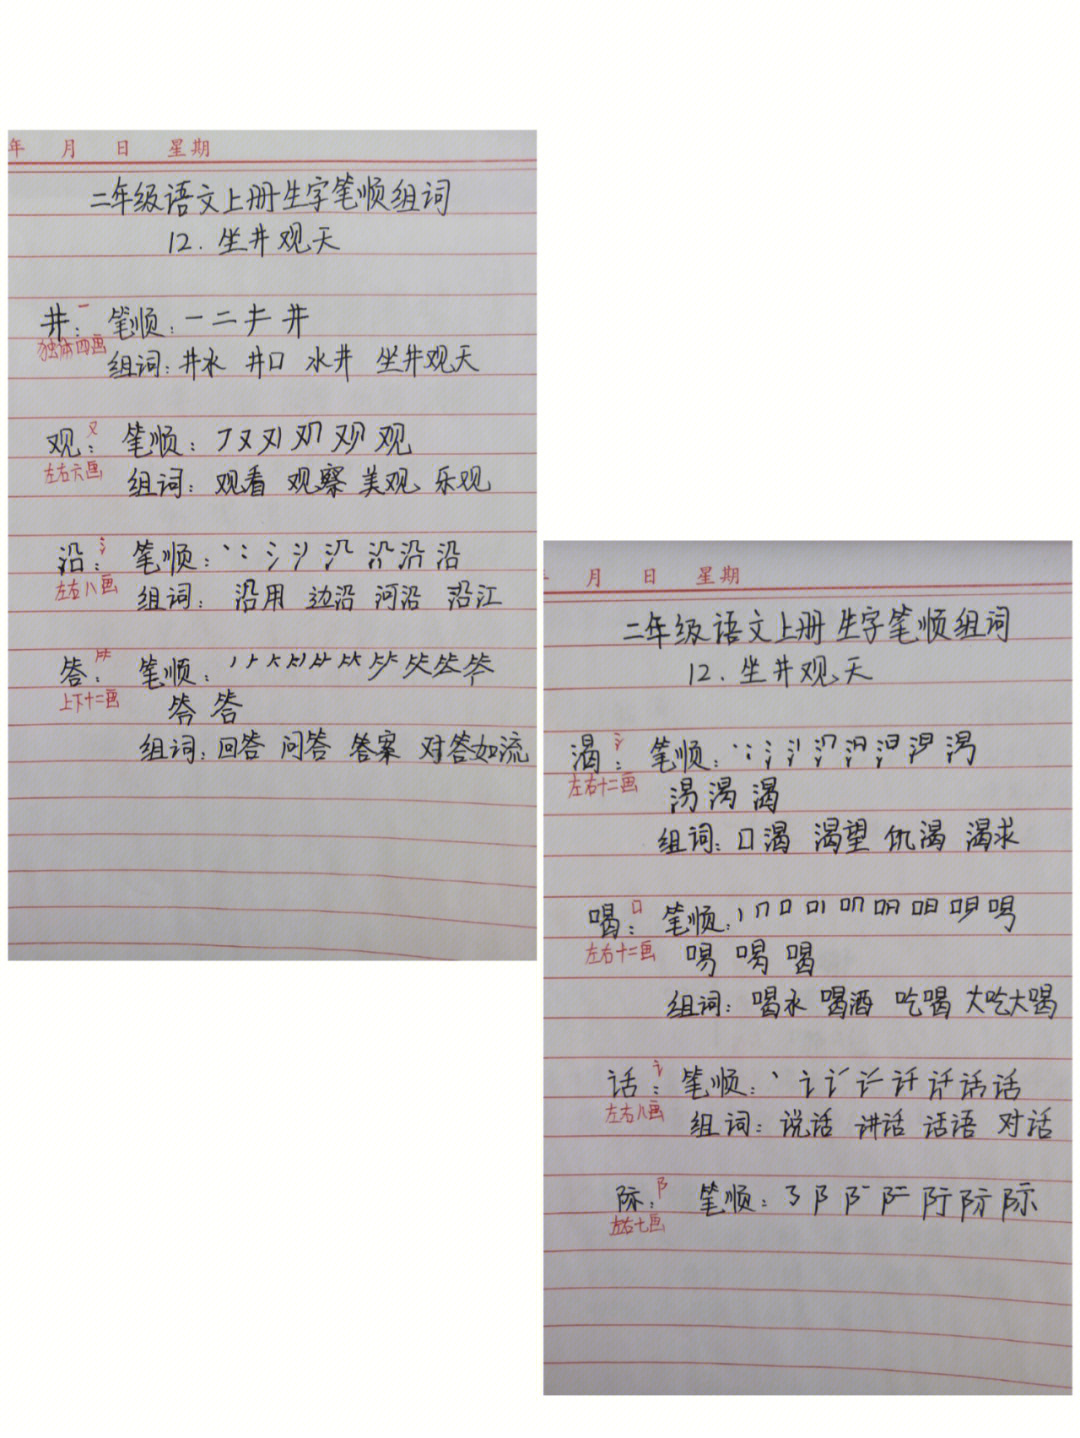 年 月 日 星期
二年级语文上册生字笔顺组词
12. 坐井观天
井: 一 笔顺: 一 二 井
独体四画
组词: 井水 井口 水井 坐井观天
观: 又 笔顺: 又 观
左右六画
组词: 观看 观察 美观 乐观
沿: 氵 笔顺: 丶 冫 氵 沿
左右八画
组词: 沿用 边沿 河沿 沿江
答: ⺮ 笔顺:
上下十二画
答
组词: 回答 问答 答案 对答如流
月 日 星期
二年级语文上册生字笔顺组词
12. 坐井观天
渴: 氵 笔顺: 丶 冫 氵
左右十二画
渴
组词: 口渴 渴望 饥渴 渴求
喝: 口 笔顺: 丨 口
左右十二画
喝
组词: 喝水 喝酒 吃喝 大吃大喝
话: 讠 笔顺: 丶 讠 话
左右八画
组词: 说话 讲话 话语 对话
际: 阝 笔顺: 阝 际
左右七画